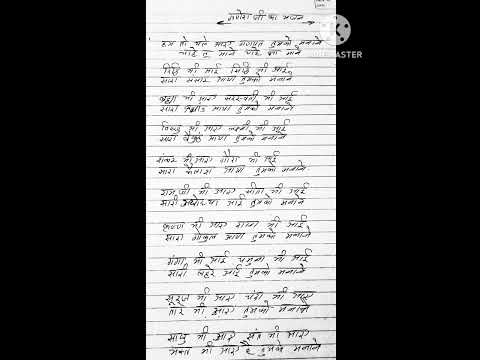 गणेश जी का भजन
हम तो चले आए गणपत तुमको मनाने
चाहे तू माने चाहे ना माने
रिद्धि भी आई सिद्धि भी आई
सारा संसार आया तुमको मनाने
ब्रह्मा भी आए सरस्वती भी आई
सारा आया तुमको मनाने
विष्णु भी आए लक्ष्मी भी आई
सारा बैकुंठ आया तुमको मनाने
शंकर भी आए गौरा भी आई
सारा कैलाश आया तुमको मनाने
राम जी भी आए सीता भी आई
सारी अयोध्या आई तुमको मनाने
कृष्ण भी आए राधा भी आई
सारा गोकुल आया तुमको मनाने
गंगा भी आई यमुना भी आई
सारी लहरें आई तुमको मनाने
सूरज भी आए चंदा भी आए
तारे भी आए तुमको मनाने
साधु भी आए संत भी आए
भक्त भी आए है तुमको मनाने